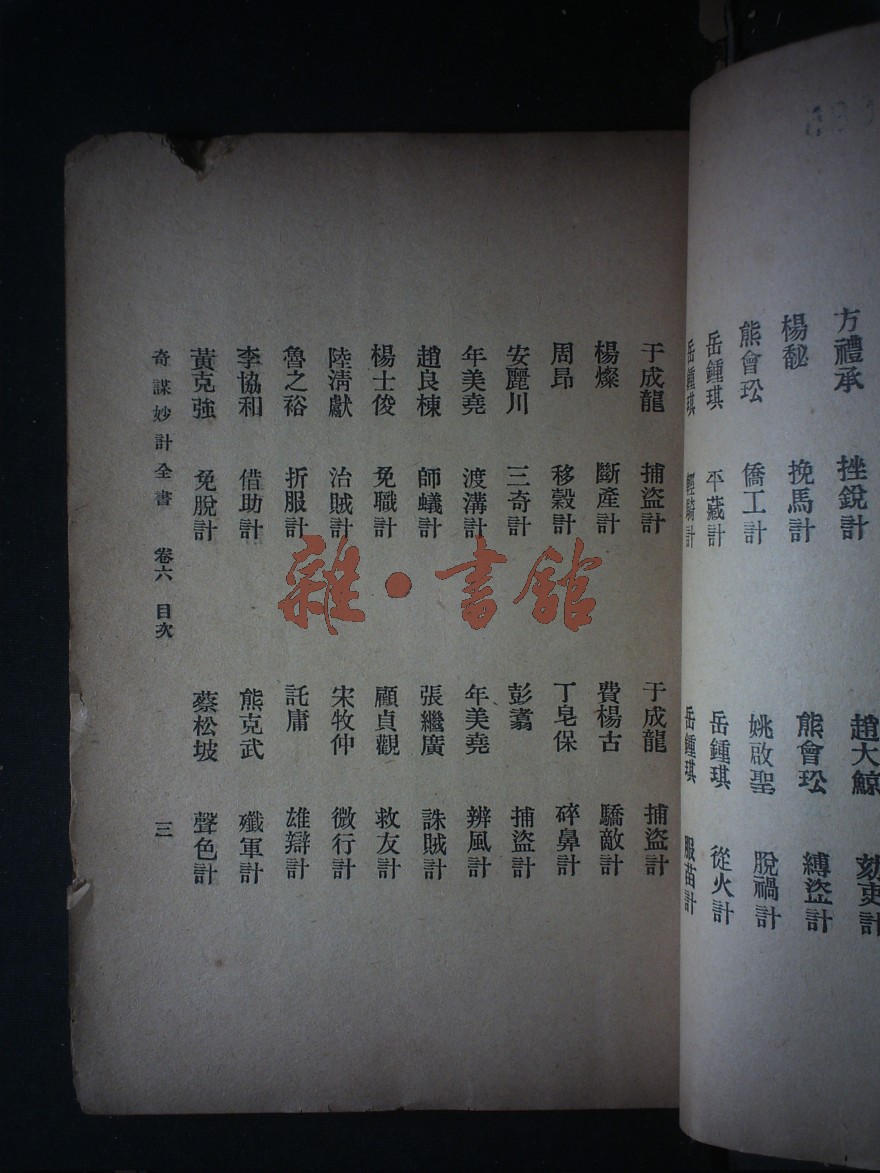 方禮承 挫銳計 趙大鯨 劾吏計
楊馝 挽馬計 熊會玜 縛盜計
熊會玜 僑工計 姚啟聖 脫禍計
岳鍾琪 平藏計 岳鍾琪 從火計
岳鍾琪 輕騎計 岳鍾琪 服苗計
于成龍 捕盜計 于成龍 捕盜計
楊燦 斷產計 費楊古 驕敵計
周昂 移穀計 丁皂保 碎鼻計
安麗川 三奇計 彭翥 捕盜計
年羹堯 渡溝計 年羹堯 辨風計
趙良棟 師蟻計 張繼廣 誅賊計
楊士俊 免職計 顧貞觀 救友計
陸清獻 治賊計 宋牧仲 微行計
魯之裕 折服計 託庸 雄辯計
李協和 借助計 熊克武 殲軍計
黃克強 免脫計 蔡松坡 聲色計
奇謀妙計全書 卷六 目次 三
雜·書館